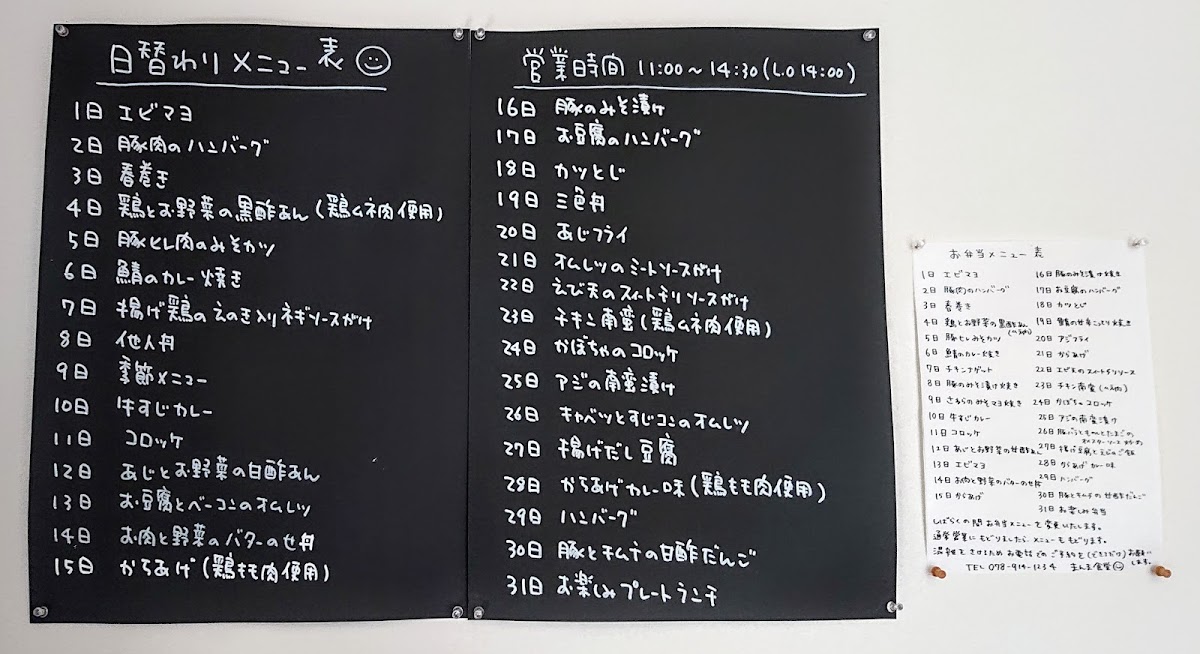 日替わりメニュー表
1日 エビマヨ
2日 豚肉のハンバーグ
3日 春巻き
4日 鶏とお野菜の黒酢あん(鶏ムネ肉使用)
5日 豚ヒレ肉のみそカツ
6日 鯖のカレー焼き
7日 揚げ鶏のえのき入りネギソースがけ
8日 他人丼
9日 季節メニュー
10日 牛すじカレー
11日 コロッケ
12日 あじとお野菜の甘酢あん
13日 お豆腐とベーコンのオムレツ
14日 お肉と野菜のバターのせ丼
15日 からあげ(鶏もも肉使用)
営業時間 11:00~14:30(L.O 14:00)
16日 豚のみそ漬け
17日 お豆腐のハンバーグ
18日 カツとじ
19日 三色丼
20日 あじフライ
21日 オムレツのミートソースがけ
22日 えび天のスイートチリソースがけ
23日 チキン南蛮(鶏ムネ肉使用)
24日 かぼちゃのコロッケ
25日 アジの南蛮漬け
26日 キャベツとすじコンのオムレツ
27日 揚げだし豆腐
28日 からあげカレー味(鶏もも肉使用)
29日 ハンバーグ
30日 豚とキムチの甘酢だんご
31日 お楽しみプレートランチ
お弁当メニュー表
1日 エビマヨ
2日 豚肉のハンバーグ
3日 春巻き
4日 鶏とお野菜の黒酢あん
5日 豚ヒレみそカツ
6日 鯖のカレー焼き
7日 チキンナゲット
8日 豚のみそ漬け焼き
9日 さわらのみそマヨ焼き
10日 牛すじカレー
11日 コロッケ
12日 あじとお野菜の甘酢あん
13日 エビマヨ
14日 お肉と野菜のバターのせ丼
15日 からあげ
16日 豚のみそ漬け焼き
17日 お豆腐のハンバーグ
18日 カツとじ
19日 鯖の甘辛こってり焼き
20日 アジフライ
21日 からあげ
22日 エビ天のスイートチリソース
23日 チキン南蛮(ムネ肉)
24日 かぼちゃコロッケ
25日 アジの南蛮漬け
26日 豚バラとちゃんとたまごの
オイスターソース炒め
27日 揚げ豆腐とそぼろご飯
28日 からあげカレー味
29日 ハンバーグ
30日 豚とキムチの甘酢だんご
31日 お楽しみ弁当
しばらくの間お弁当メニューを変更いたします。
通常営業にもどりましたら、メニューももどります。
混雑をさけるためお電話でのご予約を(できるだけ)お願いします。
TEL 078-914-1234 まんま食堂